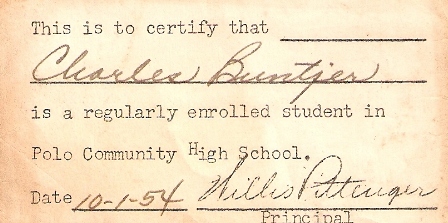 This is to certify that
Charles Buntjer
is a regularly enrolled student in
Polo Community High School.
Date 10-1-54 Willis Pittenger
Principal